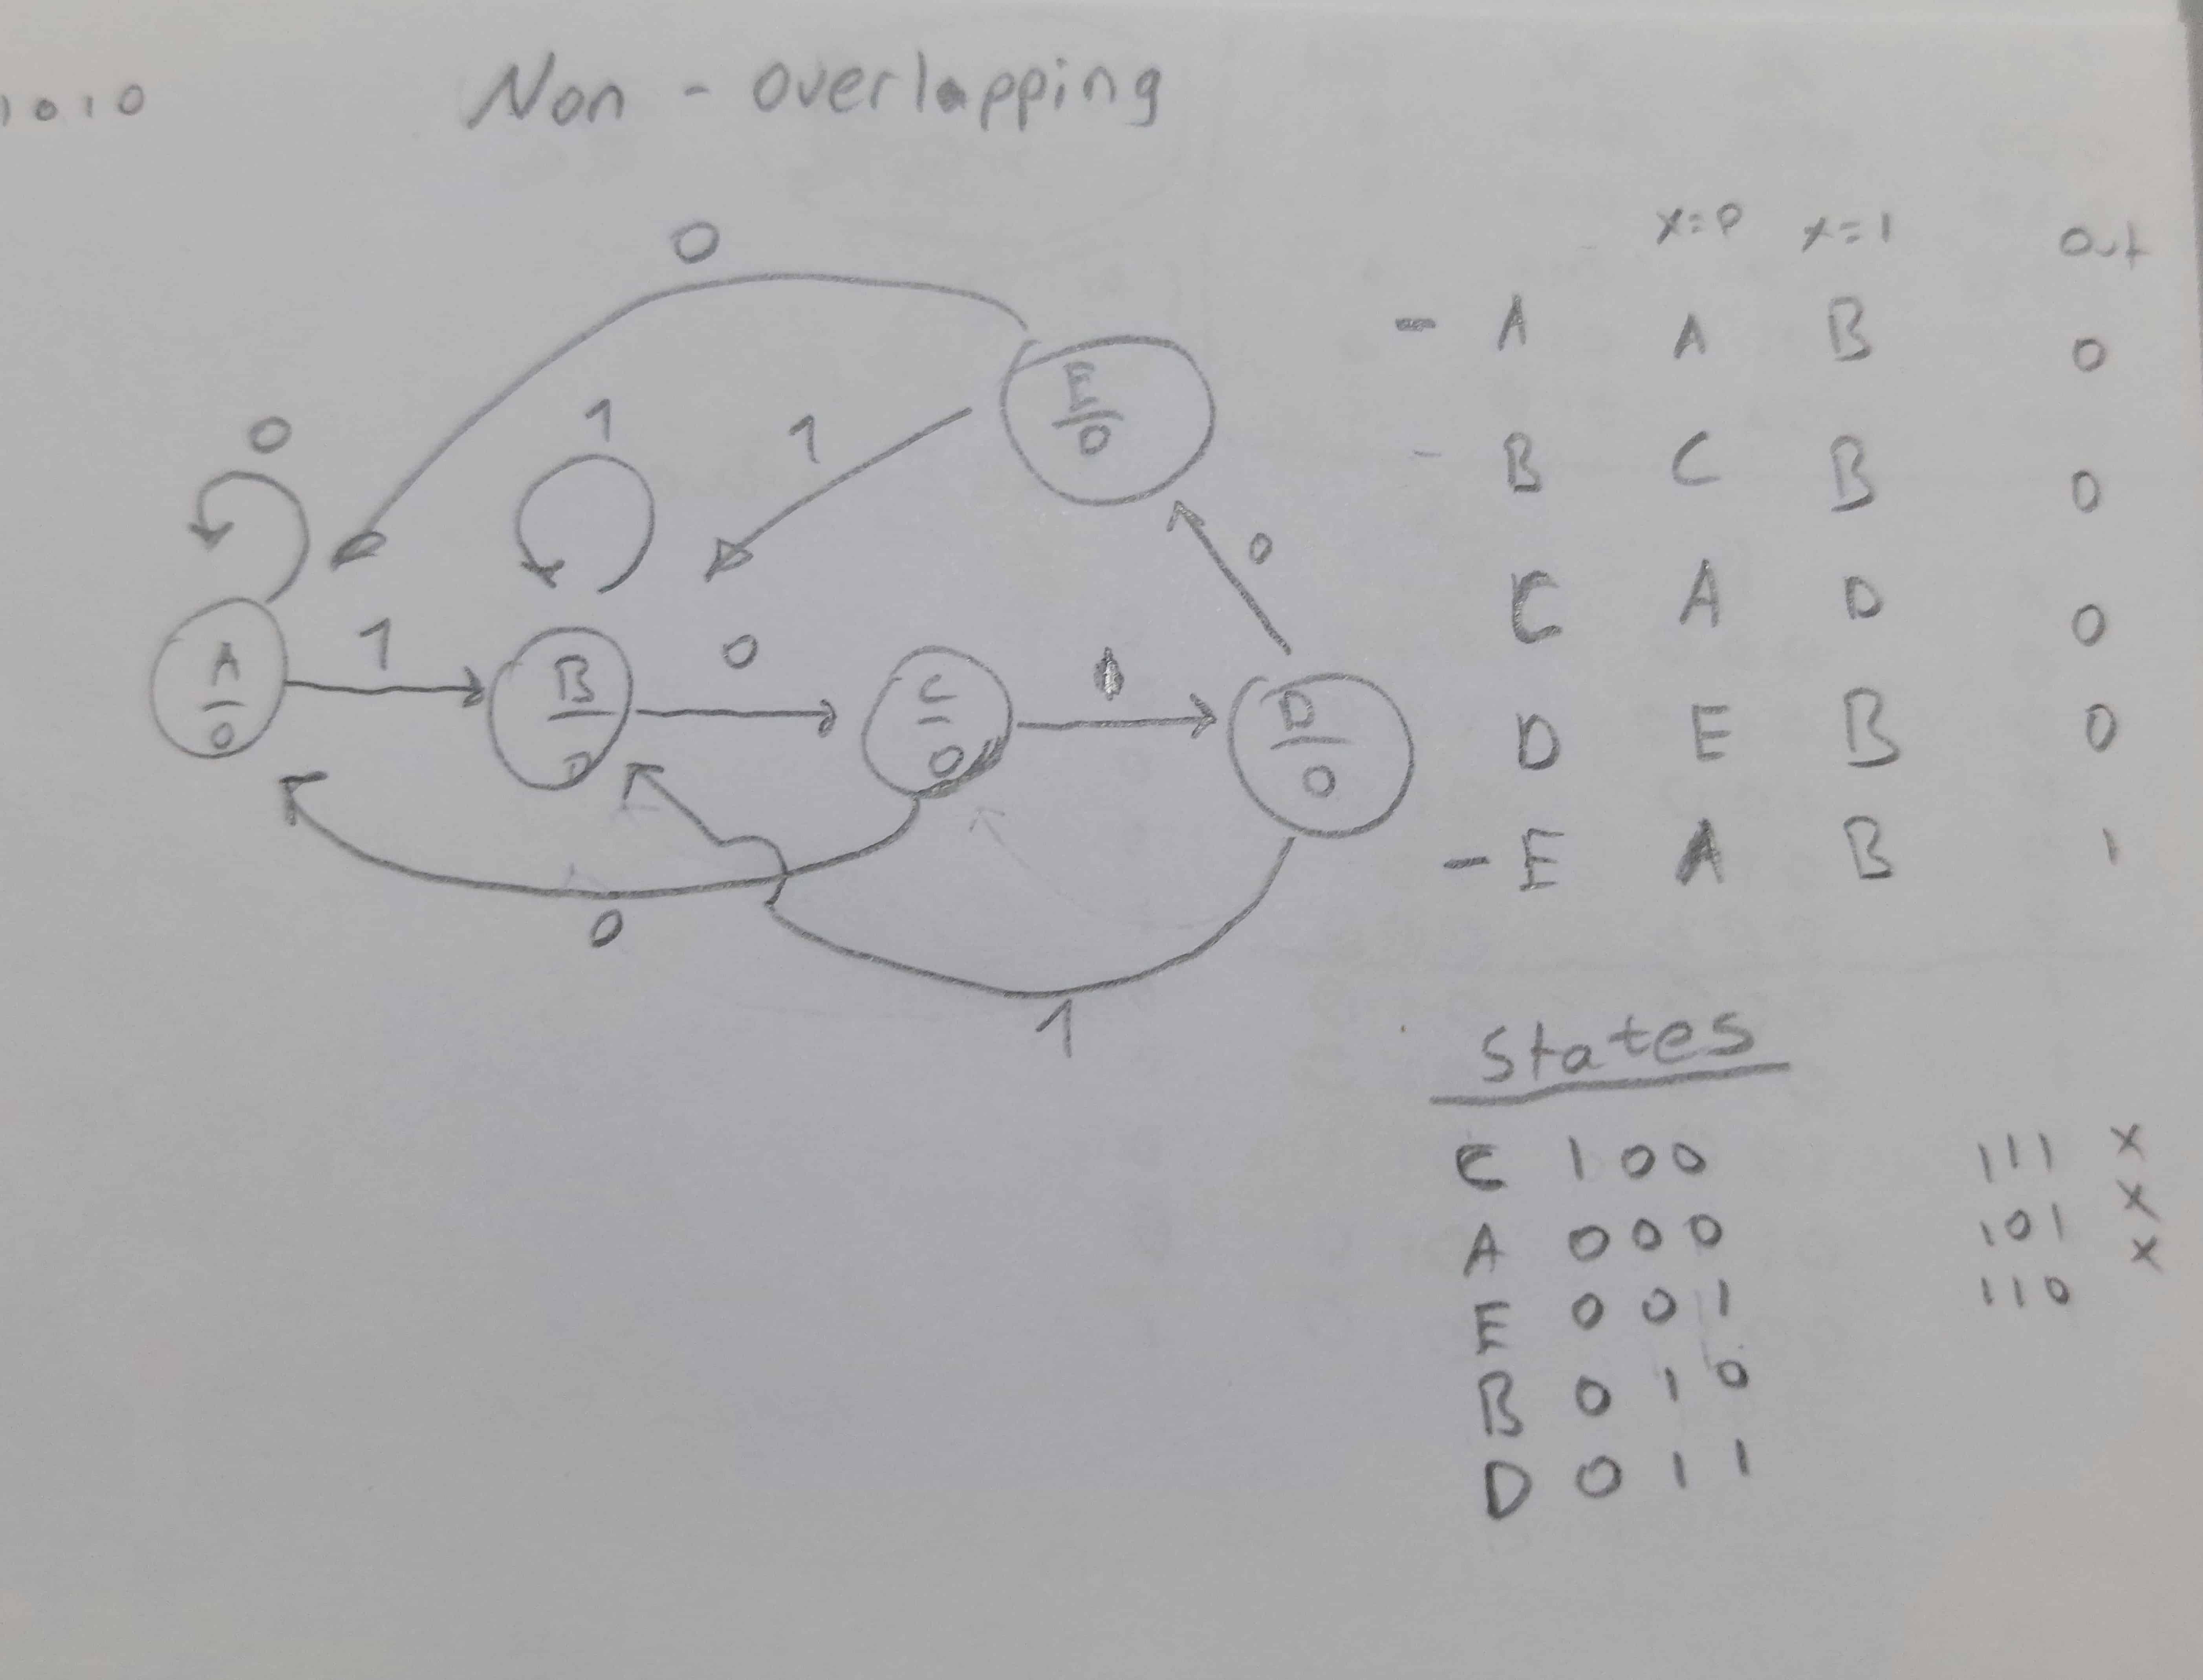 1010
Non - overlapping
0
0
1
1
E
0
0
A
0
1
B
0
C
0
D
0
0
1
x=0 x=1 out
- A A B 0
- B C B 0
C A D 0
D E B 0
- E A B 1
States
C 100
A 000
E 001
B 010
D 011
111 x
101 x
110 x